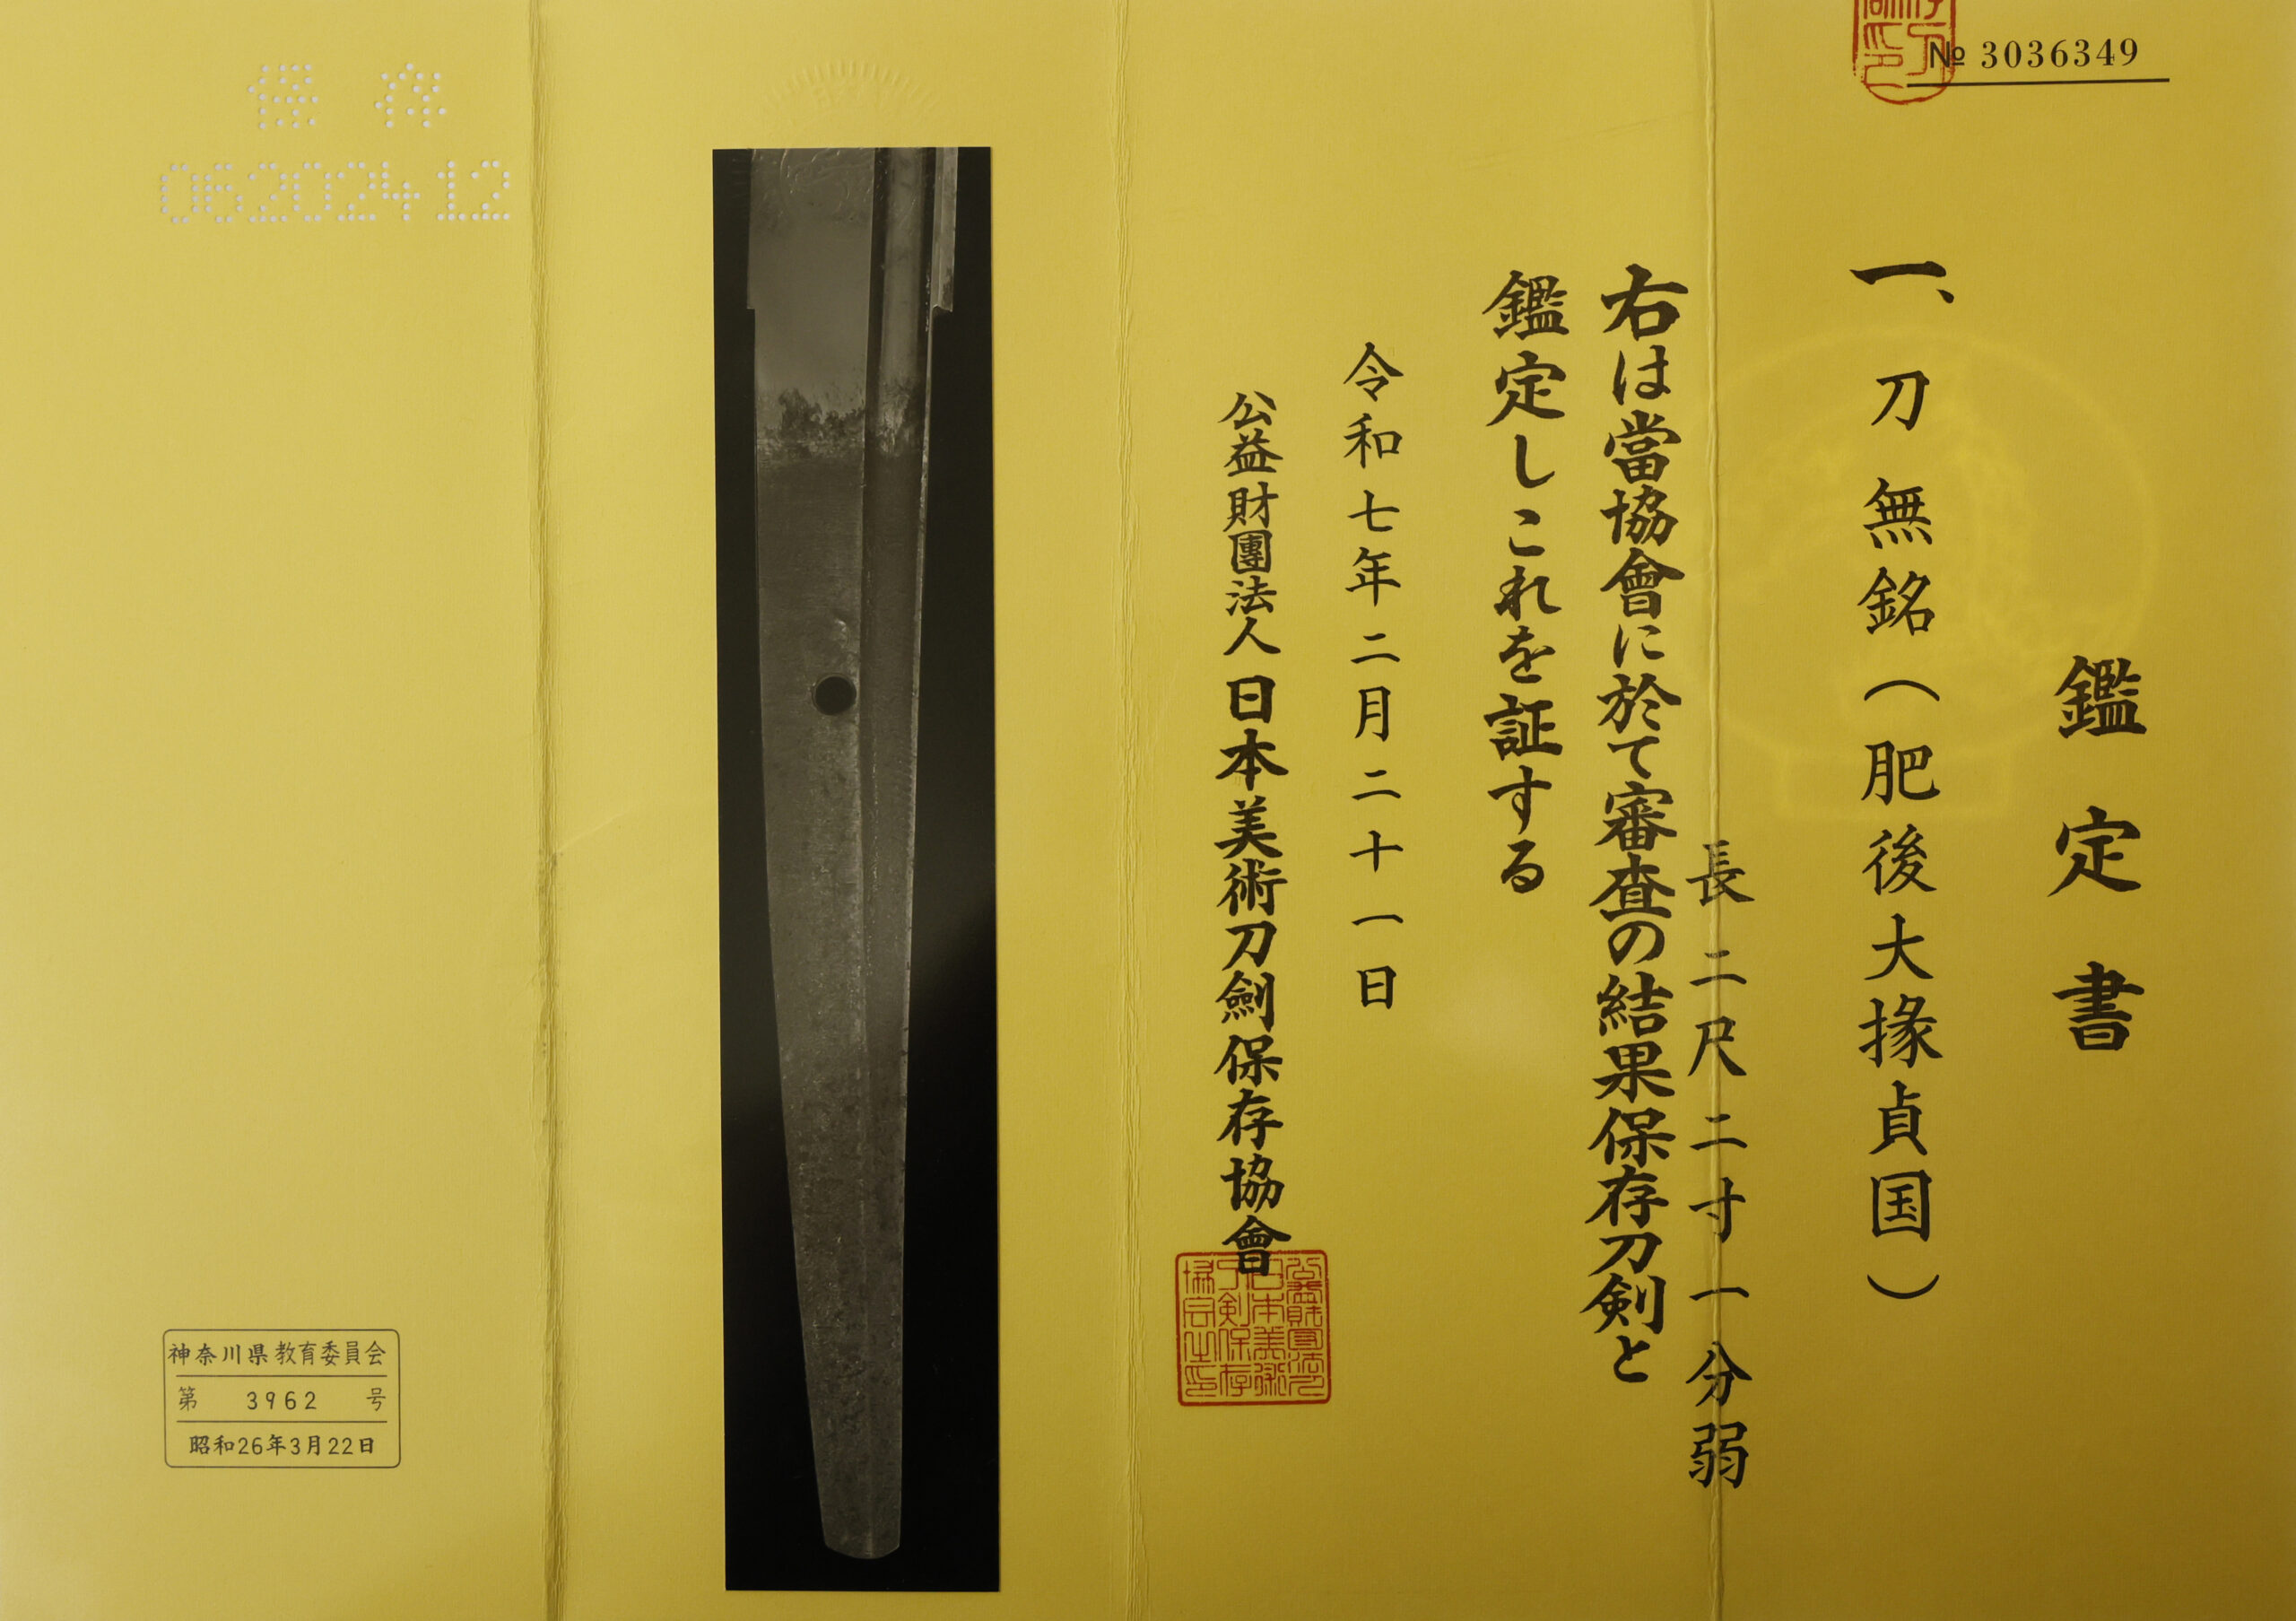 № 3036349
鑑定書
一、刀 無銘（肥後大掾貞国）
長 二尺二寸一分弱
右は當協會に於て審査の結果保存刀剣と
鑑定しこれを証する
令和七年二月二十一日
公益財團法人 日本美術刀劍保存協會
保存
06202412
神奈川県教育委員会
第 3962 号
昭和26年3月22日